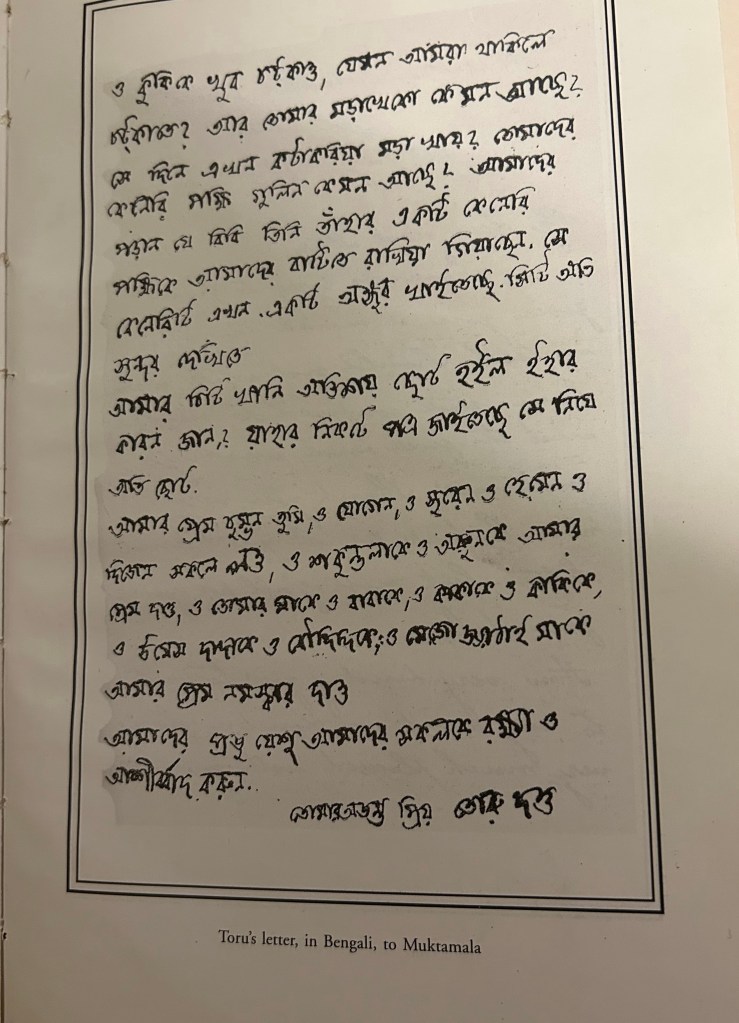 ও কুকিকে খুব চট্‌কাও, যেমন আমরা থাকিলে
চট্‌কাতে? আর তোমার মড়াখেকো কেমন আছে?
সে দিনে এখন কটাকরিয়া মড়া খায়? তোমাদের
কেনেরি পক্ষি গুলিন কেমন আছে? আমাদের
পড়ান যে বিবি তিনি তাঁহার একটি কেনেরি
পক্ষিকে আমাদের বাটিতে রাখিয়া গিয়াছেন. সে
কেনেরিটি এখন একটি অঙ্গুর খাইতেছে. সিটি অতি
সুন্দর দেখিতে
আমার চিটি খানি অতিশয় ছোট হইল ইহার
কারন জান? যাহার নিকটে পত্র জাইতেছে সে নিযে
অতি ছোট.
আমার প্রেম চুম্বন তুমি, ও যোগেন, ও সুরেন ও হেমেন ও
দিজেন সকলে লও, ও শকুন্তলাকে ও অরুনকে আমার
প্রেম দাও, ও তোমার মাকে ও বাবাকে, ও কাকাকে ও কাকিকে,
ও উমেস দাদাকে ও বৌদিদিকে, ও মেজো জ্যাঠাই মাকে
আমার প্রেম নমস্কার দাও
আমাদের প্রভু যেশু আমাদের সকলকে রক্ষা ও
আশীর্ব্বাদ করুন.
তোমার অত্যন্ত প্রিয় তোরু দত্ত
Toru's letter, in Bengali, to Muktamala